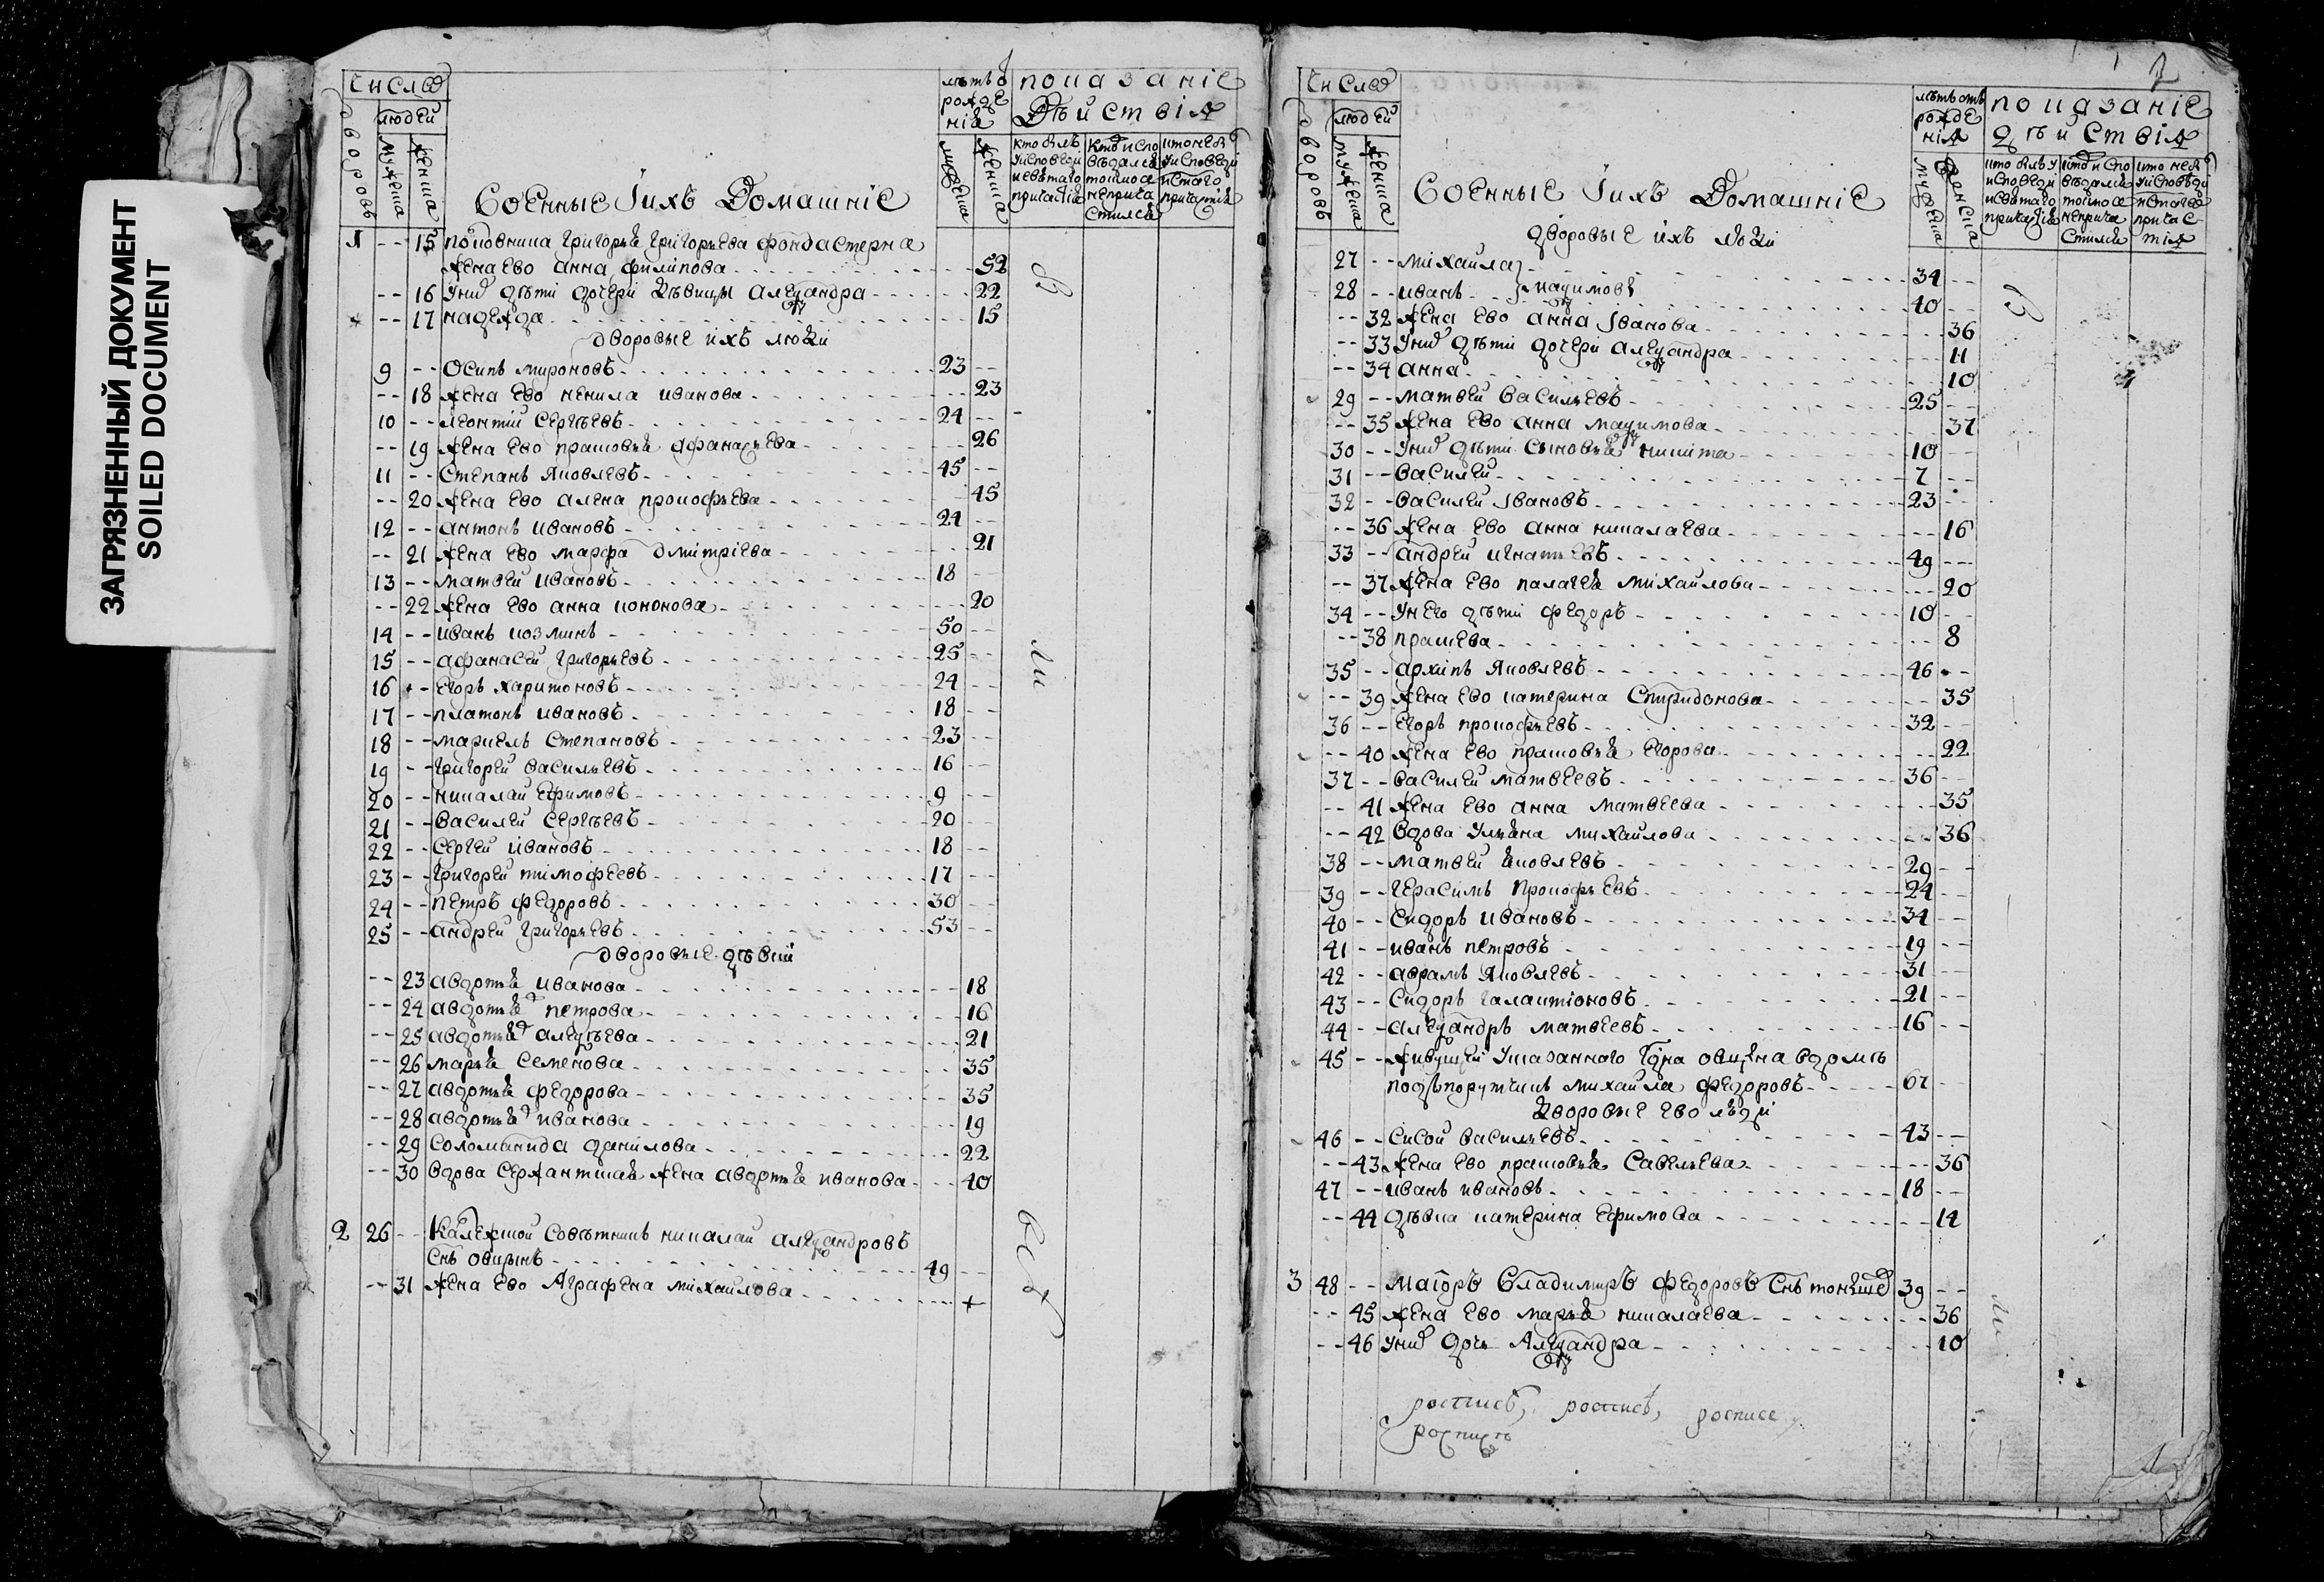 ЗАГРЯЗНЕННЫЙ ДОКУМЕНТ
SOILED DOCUMENT
Число
дворовъ
людей
мужеска
женска
Военные iихъ Домашнiе
лѣтъ ѿ рождѣнiя
мужеска
женска
показанiе
Дѣйствiя
кто былъ у исповеди и святаго причастiя
кто исповѣдался токмо а не причастился
кто не был у исповеди и святаго причастия
1 -- 15 полковника григорья григорьева фондастерна
жена ево анна филипова 52
-- 16 унихъ дѣти дочери дѣвицы александра 22
-- 17 надежда 15
дворовые ихъ люди
9 -- осипъ мироновъ 23 --
-- 18 жена ево ненила иванова -- 23
10 -- леонтiй сергѣевъ 24 --
-- 19 жена ево прасковья афанасьева -- 26
11 -- степанъ яковлевъ 45 --
-- 20 жена ево алена прокофьева -- 45
12 -- антонъ ивановъ 24 --
-- 21 жена ево марфа дмитрiева -- 21
13 -- матвей ивановъ 18 --
-- 22 жена ево анна кононова -- 20
14 -- иванъ козминъ 50 --
15 -- афанасей григорьевъ 25 --
16 -- егоръ харитоновъ 24 --
17 -- платонъ ивановъ 18 --
18 -- маркелъ степановъ 23 --
19 -- григорей васильевъ 16 --
20 -- никалай ефимовъ 9 --
21 -- василей сергѣевъ 20 --
22 -- сергей iвановъ 18 --
23 -- григорей тiмофеевъ 17 --
24 -- петръ федоровъ 30 --
25 -- андрей григорьевъ 53 --
дворовые дѣвки
-- 23 авдотья иванова -- 18
-- 24 авдотья петрова -- 16
-- 25 авдотья алексѣева -- 21
-- 26 марья семенова -- 35
-- 27 авдотья федорова -- 35
-- 28 авдотья иванова -- 19
-- 29 соломанида данилова -- 22
-- 30 вдова сержантская жена авдотья иванова -- 40
2 26 -- Калежской совѣтникъ никалай александровъ
снъ овцынъ 49 --
-- 31 жена ево Аграфена михайлова -- +
7
Число
дворовъ
людей
мужеска
женска
Военные iихъ Домашнiе
лѣтъ отъ рождѣнiя
мужеска
женска
показанiе
дѣйствiя
кто былъ у исповеди и святаго причастiя
кто исповѣдался токмо а не причастился
кто не былъ у исповѣди и святаго причастiя
дворовые ихъ люди
27 -- михайла 34 --
28 -- иванъ максимовы 40 --
-- 32 жена ево анна iванова -- 36
-- 33 унихъ дѣти дочери александра -- 11
-- 34 анна -- 10
29 -- матвей васильевъ 25 --
-- 35 жена ево анна максимова -- 37
30 -- унихъ дѣти сыновья никита 10 --
31 -- василей 7 --
32 -- василей iвановъ 23 --
-- 36 жена ево анна никалаева -- 16
33 -- андрей игнатьевъ 49 --
-- 37 жена ево палагея михайлова -- 20
34 -- у него дѣти федоръ 10 --
-- 38 -- 8
35 -- архипъ яковлевъ 46 --
-- 39 жена ево катерина спиридонова -- 35
36 -- егоръ прокофьевъ 32 --
-- 40 жена ево прасковья егорова -- 22
37 -- василей матвеевъ 36 --
-- 41 жена ево анна матвеева -- 35
-- 42 вдова ульяна михайлова -- 36
38 -- матвей яковлевъ 29 --
39 -- герасимъ прокофьевъ 24 --
40 -- сидоръ ивановъ 34 --
41 -- иванъ петровъ 19 --
42 -- аврамъ яковлевъ 31 --
43 -- сидоръ галактiоновъ 21 --
44 -- александръ матвеевъ 16 --
45 -- живущей у показаннаго гдна овцына вдомѣ
подъпорутчикъ михайла федоровъ 67 --
дворовые ево люди
46 -- сисой васильевъ 43 --
-- 43 жена ево прасковья савельева -- 36
47 -- иванъ ивановъ 18 --
-- 44 дѣвка катерина ефимова -- 14
3 48 -- Маiоръ Владимиръ федоровъ снъ 39 --
-- 45 жена ево марья никалаева -- 36
-- 46 унихъ дочь Александра -- 10
роспись, роспись, росписе
роспись